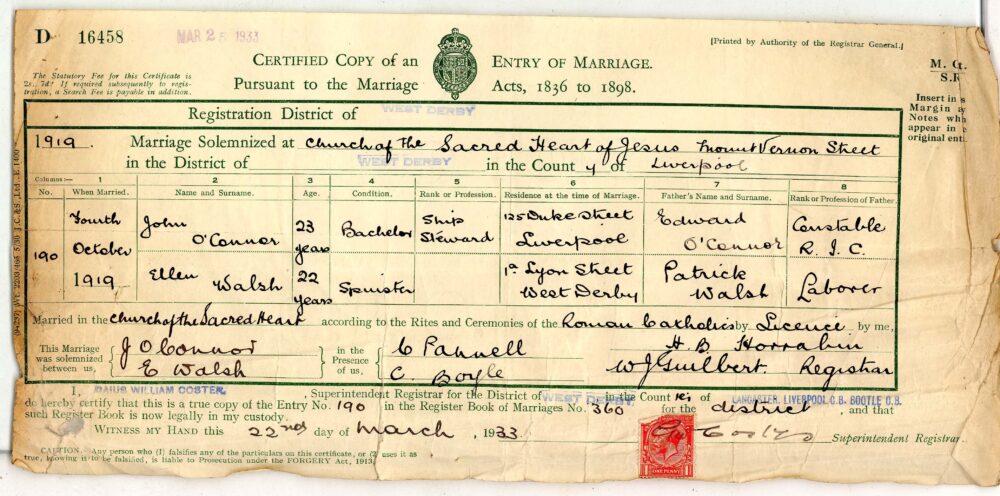 D 16458
MAR 25 1933
[Printed by Authority of the Registrar General.]
CERTIFIED COPY OF AN ENTRY OF MARRIAGE.
Pursuant to the Marriage Acts, 1836 to 1898.
The Statutory Fee for this Certificate is
2s. 7d. If required subsequently to regis-
tration, a Search Fee is payable in addition.
M. C.
S.R
Insert in
Margin a
Notes wh
appear in
original ent
Registration District of WEST DERBY
1919. Marriage Solemnized at Church of the Sacred Heart of Jesus Mount Vernon Street
in the District of WEST DERBY in the County of Liverpool
Columns :— 1 2 3 4 5 6 7 8
No. When Married. Name and Surname. Age. Condition. Rank or Profession. Residence at the time of Marriage. Father's Name and Surname. Rank or Profession of Father.
190 Fourth October 1919
John O'Connor 23 years Bachelor Ship Steward 125 Duke Street Liverpool Edward O'Connor Constable R. I. C.
Ellen Walsh 22 years Spinister 1a Lyon Street West Derby Patrick Walsh Laborer
Married in the Church of the Sacred Heart according to the Rites and Ceremonies of the Roman Catholics by Licence by me,
This Marriage was solemnized between us, J O'Connor E Walsh in the Presence of us, C Pannell C. Boyle H. B Horrabin W J Guilbert Registrar
I, DAIUS WILLIAM COSTER, Superintendent Registrar for the District of WEST DERBY in the Counties of LANCASTER, LIVERPOOL C.B. BOOTLE C.B.
do hereby certify that this is a true copy of the Entry No. 190 in the Register Book of Marriages No. 360 for the district, and that
such Register Book is now legally in my custody.
WITNESS MY HAND this 22nd day of March, 1933. Superintendent Registrar
CAUTION.—Any person who (1) falsifies any of the particulars on this certificate, or (2) uses it as
true, knowing it to be falsified, is liable to Prosecution under the FORGERY Act, 1913.
ONE PENNY